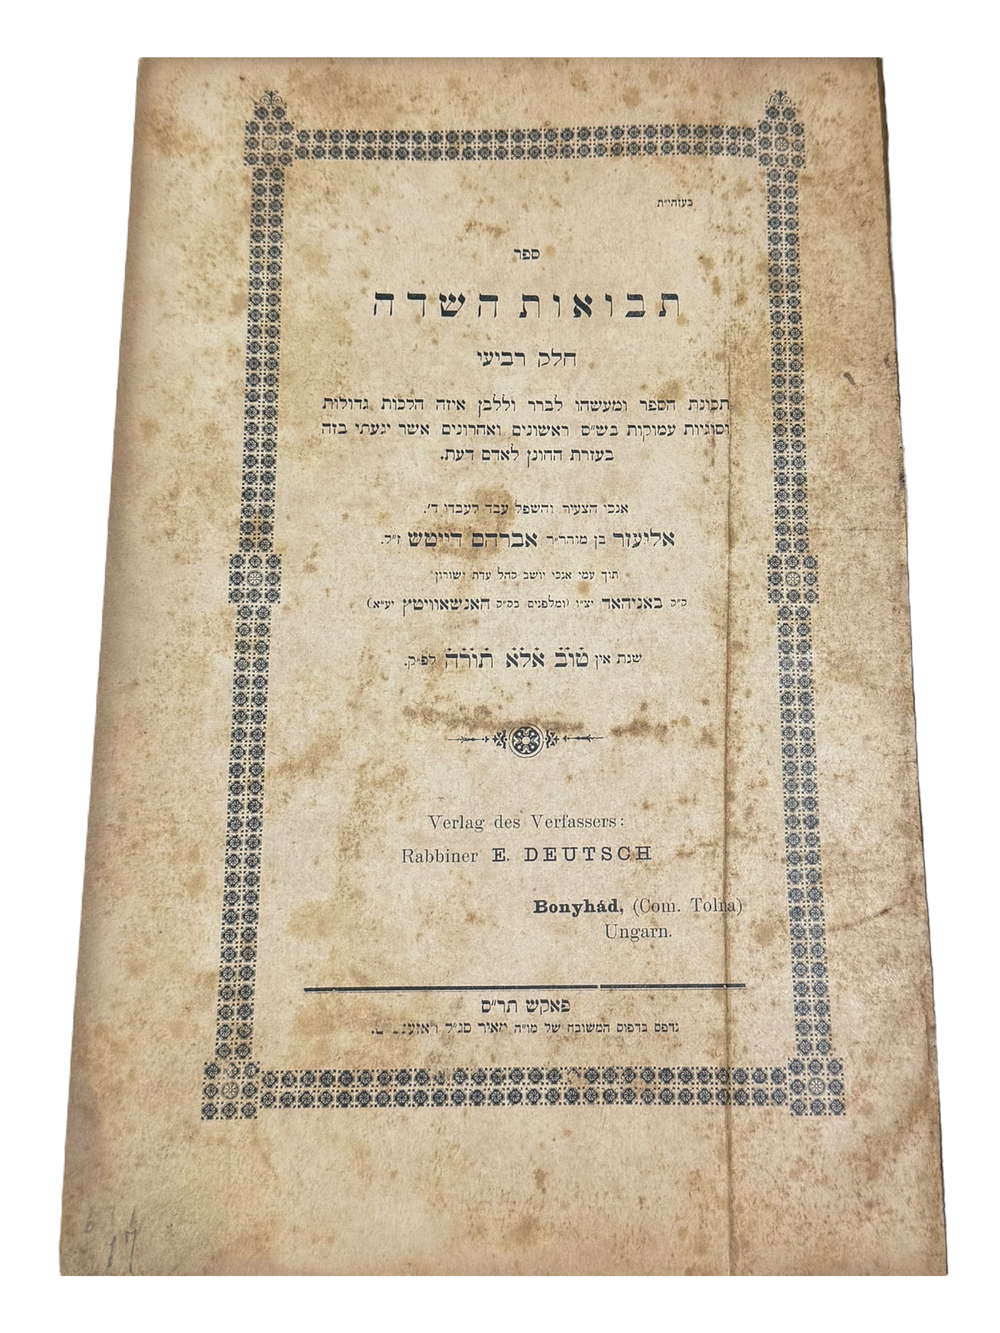 בעזהי״ת
ספר
תבואות השדה
חלק רביעי
תכונת הספר ומעשהו לברר וללבן איזה הלכות גדולות
וסוגיות עמוקות בש״ס ראשונים ואחרונים אשר יגעתי בזה
בעזרת החונן לאדם דעת.
אנכי הצעיר והשפל עבד לעבדי ד׳.
אליעזר בן מוהר״ר אברהם דייטש ז״ל.
תוך עמי אנכי יושב קהל עדת ישורון
ק״ק באניהאד יצ״ו (ומלפנים בק״ק האנשאוויטץ יע״א)
שנת אין טוב אלא תורה לפ״ק.
Verlag des Verfassers:
Rabbiner E. DEUTSCH
Bonyhád, (Com. Tolna)
Ungarn.
פאקש תר״ס
נדפס בדפוס המשובח של מו״ה מאיר סג״ל
17